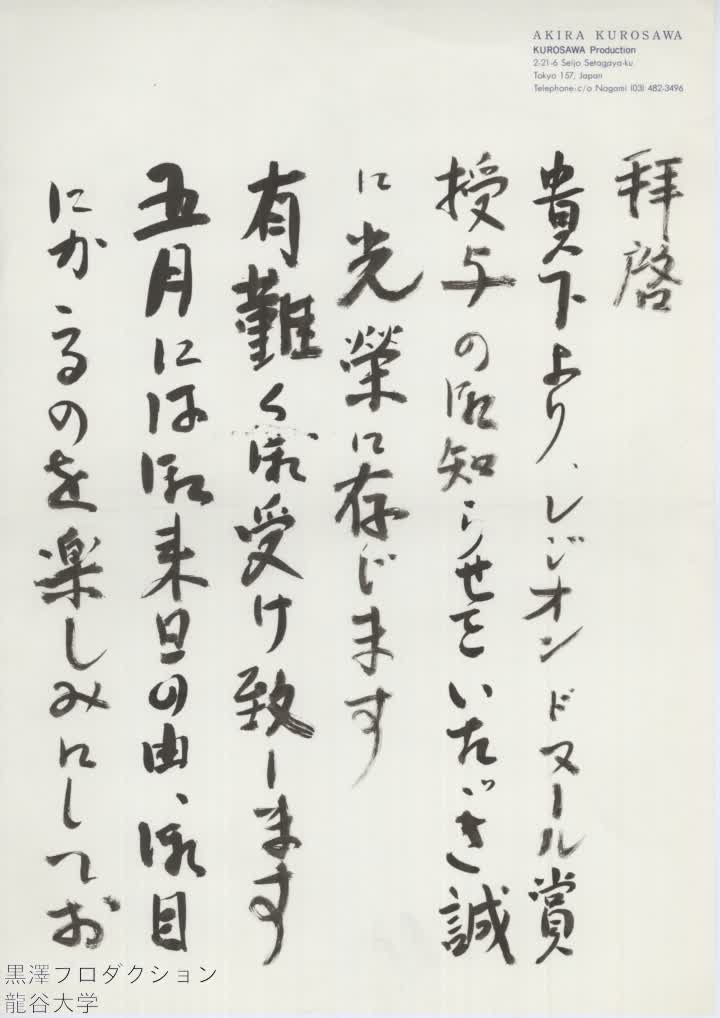 AKIRA KUROSAWA
KUROSAWA Production
2-21-6 Seijo Setagaya-ku
Tokyo 157, Japan
Telephone: c/o Nogami (03) 482-3496
拝啓
貴下より、レジオンドヌール賞
授与の御知らせをいたゞき誠
に光榮に存じます
有難く御受け致します
五月には御来日の由、御目
にかゝるのを楽しみにしてお
黒澤プロダクション
龍谷大学